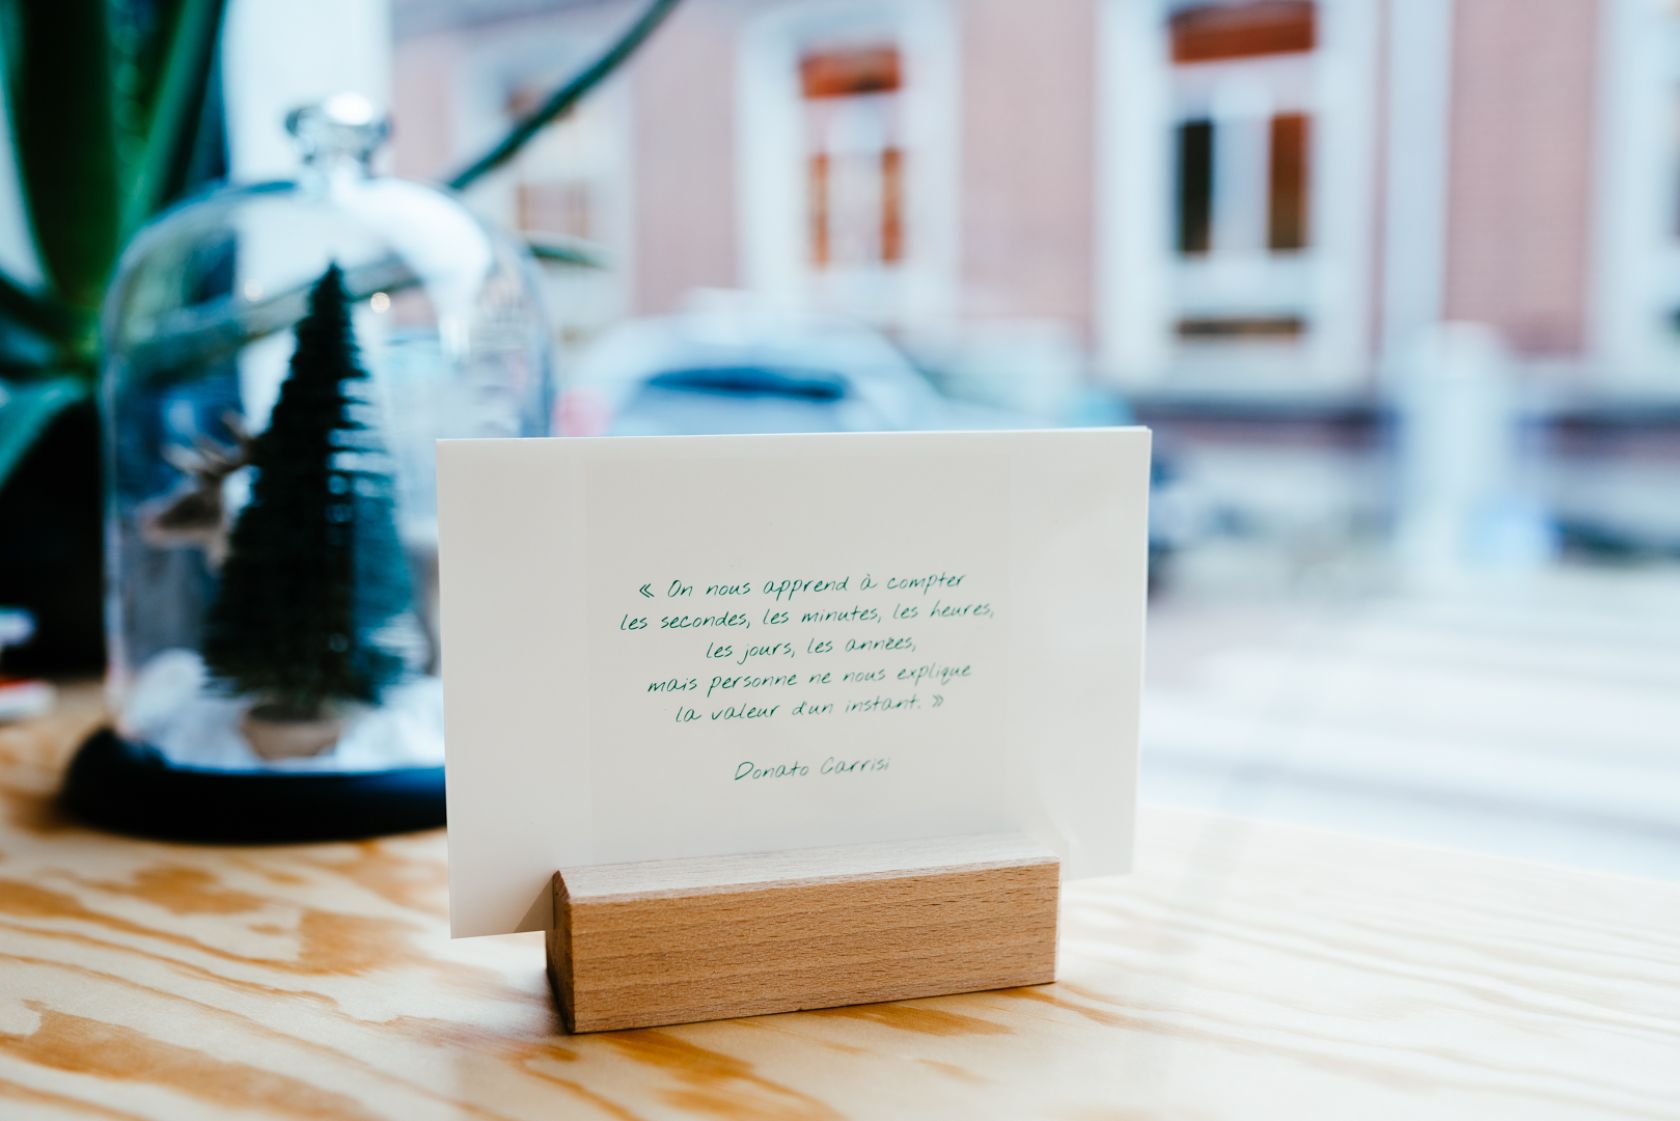 « On nous apprend à compter
les secondes, les minutes, les heures,
les jours, les années,
mais personne ne nous explique
la valeur d'un instant. »
Donato Carrisi